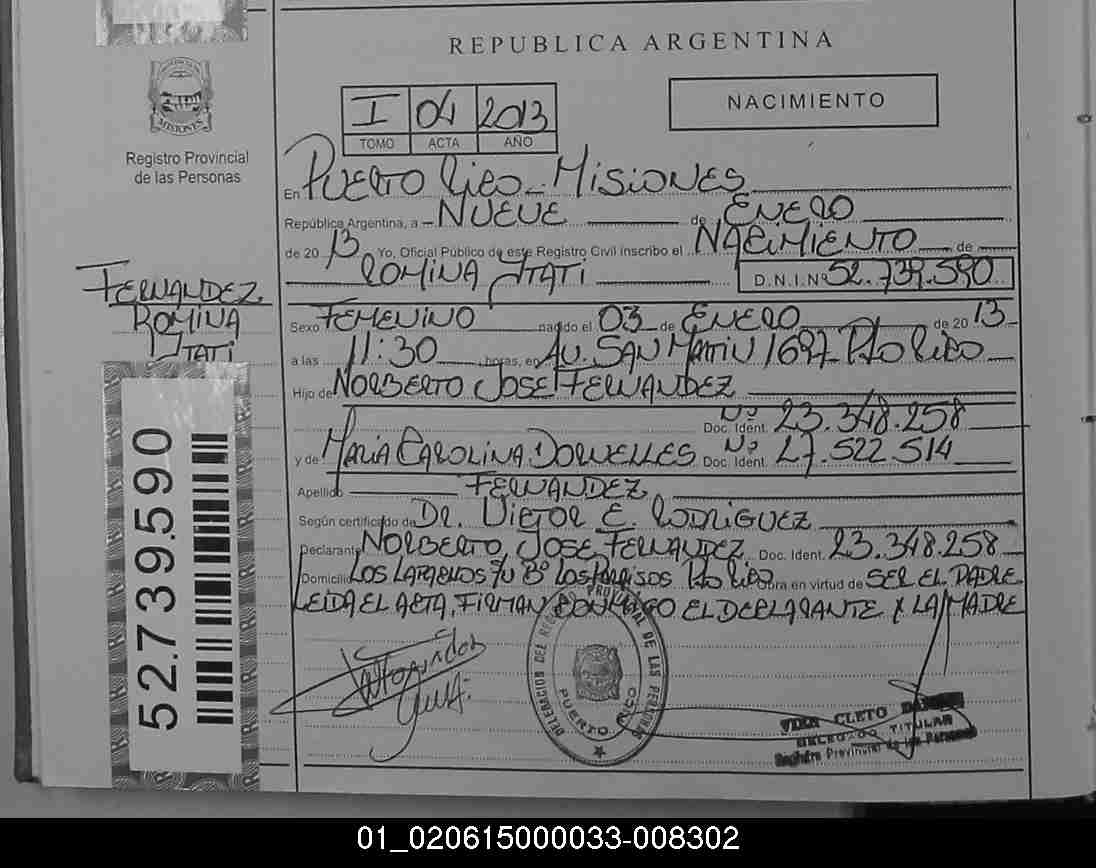 REPUBLICA ARGENTINA
MISIONES
Registro Provincial
de las Personas
I 04 2013
TOMO ACTA AÑO
NACIMIENTO
En PUERTO RICO - MISIONES
República Argentina, a - NUEVE de ENERO
de 20 13 Yo, Oficial Público de este Registro Civil inscribo el NACIMIENTO de
ROMINA ITATI D.N.I.Nº 52.739.590
FERNANDEZ
ROMINA
ITATI
Sexo FEMENINO nacido el 03 de ENERO de 20 13
a las 11:30 horas, en AV. SAN MARTIN 1697 - Pto RICO
Hijo de NORBERTO JOSE FERNANDEZ
Doc. Ident. Nº 23.348.258
y de MARIA CAROLINA DORNELLES Doc. Ident. Nº 27.522.514
Apellido FERNANDEZ
Según certificado de DR. VICTOR E. RODRIGUEZ
Declarante NORBERTO JOSE FERNANDEZ Doc. Ident. 23.348.258
Domicilio LOS LAPACHOS Bº LOS PARAISOS Pto RICO Obra en virtud de SER EL PADRE
LEIDA EL ACTA, FIRMAN CONMIGO EL DECLARANTE Y LA MADRE
52.739.590
DELEGACION DEL REGISTRO PROVINCIAL DE LAS PERSONAS
PUERTO RICO
CLETO
DELEGADO TITULAR
Registro Provincial de las Personas
01_020615000033-008302